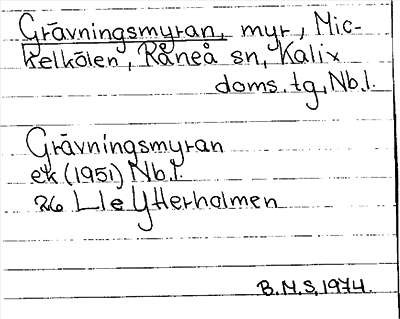 Grävningsmyran, myr, Mic-
kelkölen, Råneå sn, Kalix
doms. tg, Nb.l.
Grävningsmyran
ek (1951) Nb.l.
26 L l e Ytterholmen
B.M.S, 1974.